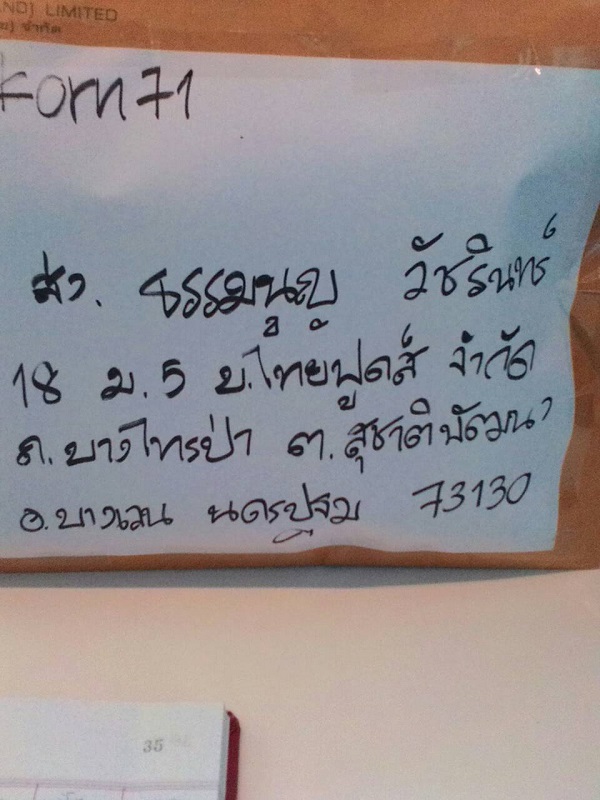 AND) LIMITED
ย) จำกัด
korn71
ส่ว. ธรรมนูญ วัชรินทร์
18 ม.5 บ.ไทยฟู้ดส์ จำกัด
ถ.บางไทรป่า ต.สุชาติพัฒนา
อ.บางเลน นครปฐม 73130
35